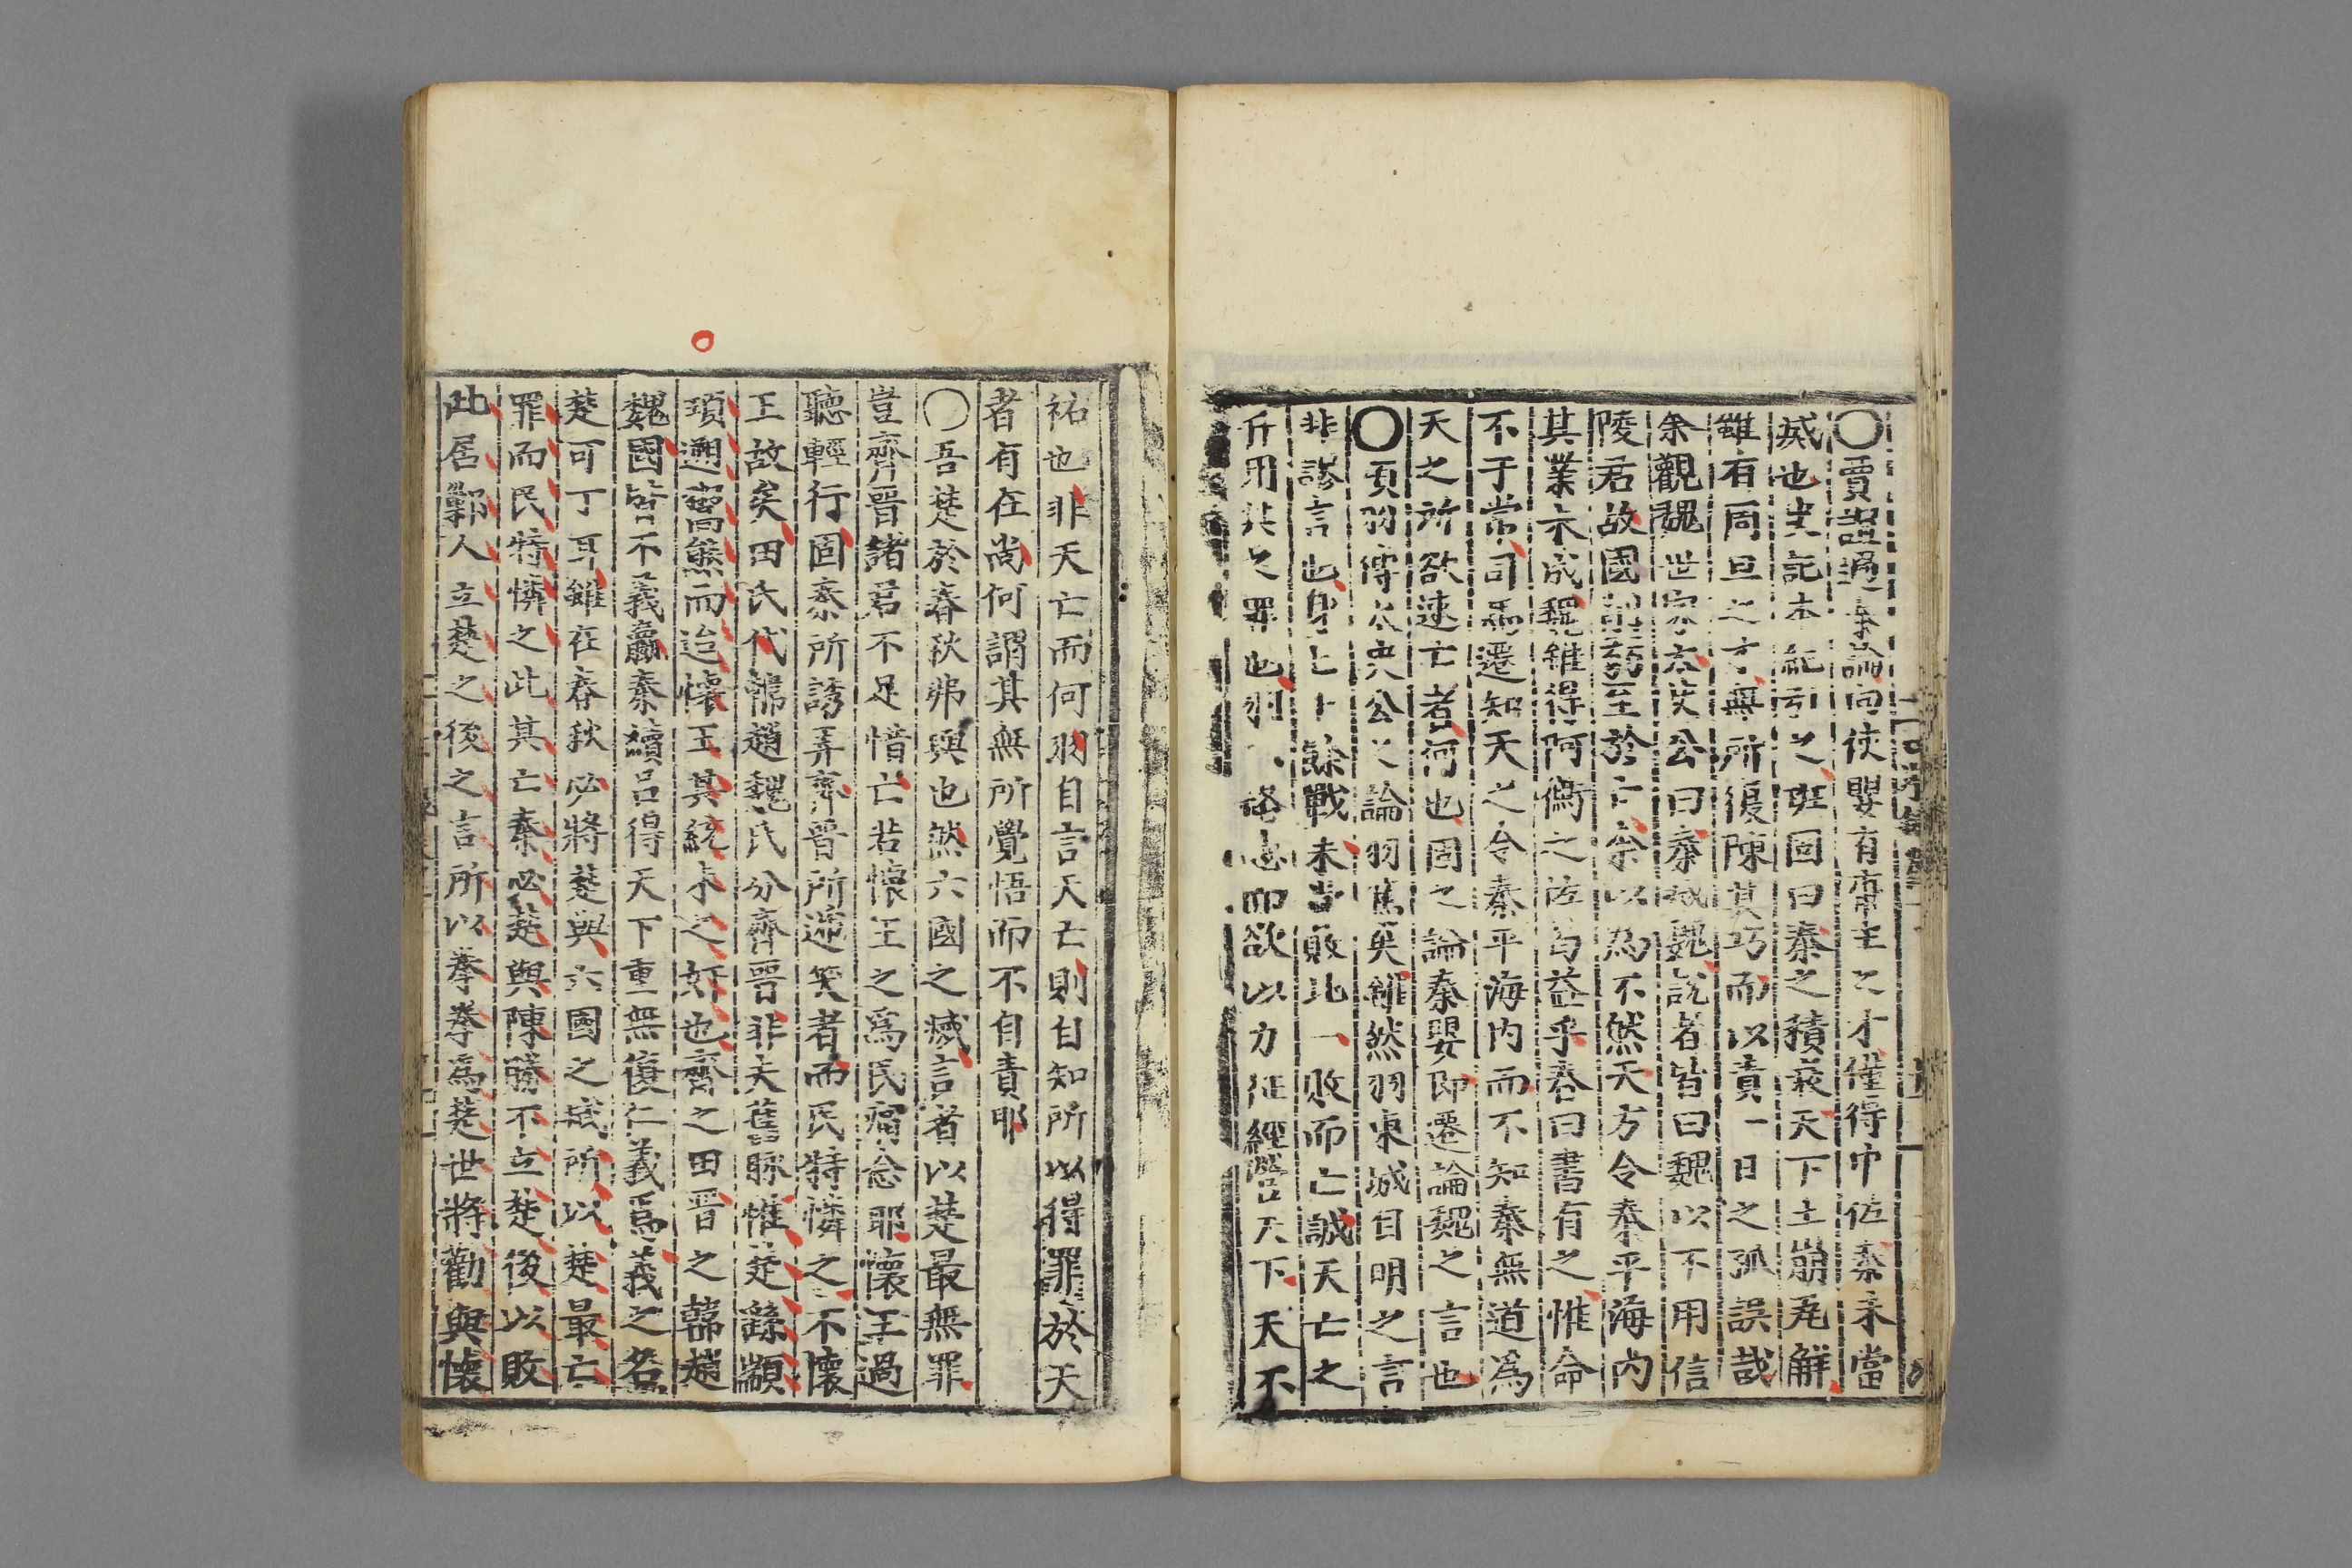 ○賈誼過秦論向使嬰有庸主之才僅得中佐秦未當
滅也史記本紀引之班固曰秦之積衰天下土崩瓦解
雖有周旦之才無所復陳其巧而以責一日之孤誤哉
余觀魏世家太史公曰秦滅魏說者皆曰魏以不用信
陵君故國削弱至於亡余以為不然天方令秦平海內
其業未成魏雖得阿衡之佐曷益乎春曰書有之惟命
不于常司馬遷知天之令秦平海內而不知秦無道為
天之所欲速亡者何也固之論秦嬰即遷論魏之言也
○項羽傳太史公之論羽舊矣雖然羽東城自明之言
非謬言也身七十餘戰未嘗敗北一敗而亡誠天亡之
斤用其之罪也羽 而欲以力征經營天下天不
祐也非天亡而何羽自言天亡則自知所以得罪於天
者有在尚何謂其無所覺悟而不自責耶
○吾楚於春秋弗與也然六國之滅言者以楚最無罪
豈齊晉諸君不足惜亡若懷王之爲民痛念耶懷王過
聽輕行固秦所誘弄齊晉所逆笑者而民特憐之不懷
王故矣田氏代韓趙魏氏分齊晉非天舊脈惟楚繇顓
頊遡鬻熊而迨懷王其統未之奸也齊之田晉之韓趙
魏國皆不義嬴秦續呂得天下重無復仁義爲義之名
楚可丁耳雖在春秋必將楚與六國之滅所以楚最亡
罪而民特憐之此其亡秦必楚與陳勝不立楚後以敗
此居鄛人立楚之後之言所以拳拳爲楚世將勸與懷